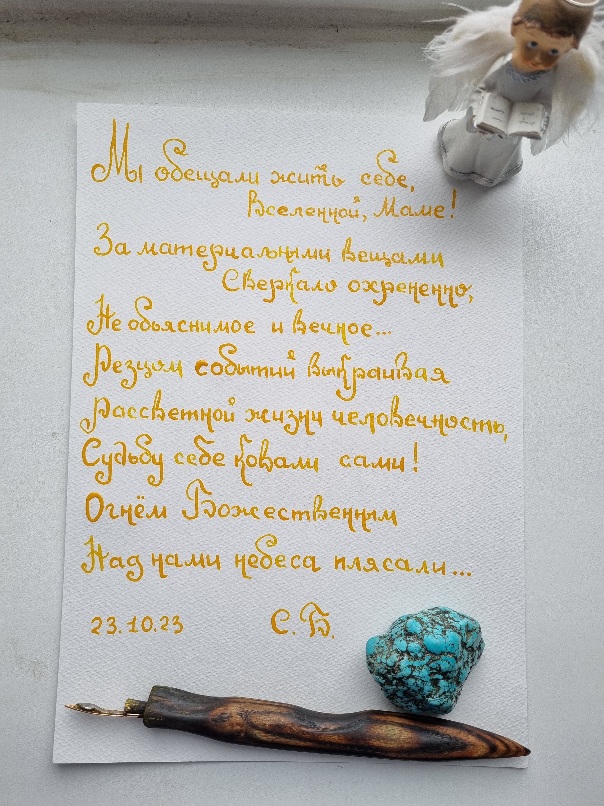 Мы обещали жить себе,
Вселенной, Маме!
За материальными вещами
Сверкало охрененно,
Не обьяснимое и вечное...
Резцом событий выкраивая
Рассветной жизни человечность,
Судьбу себе ковали сами!
Огнём Божественным
Над нами небеса плясали...
23.10.23 С.Б.